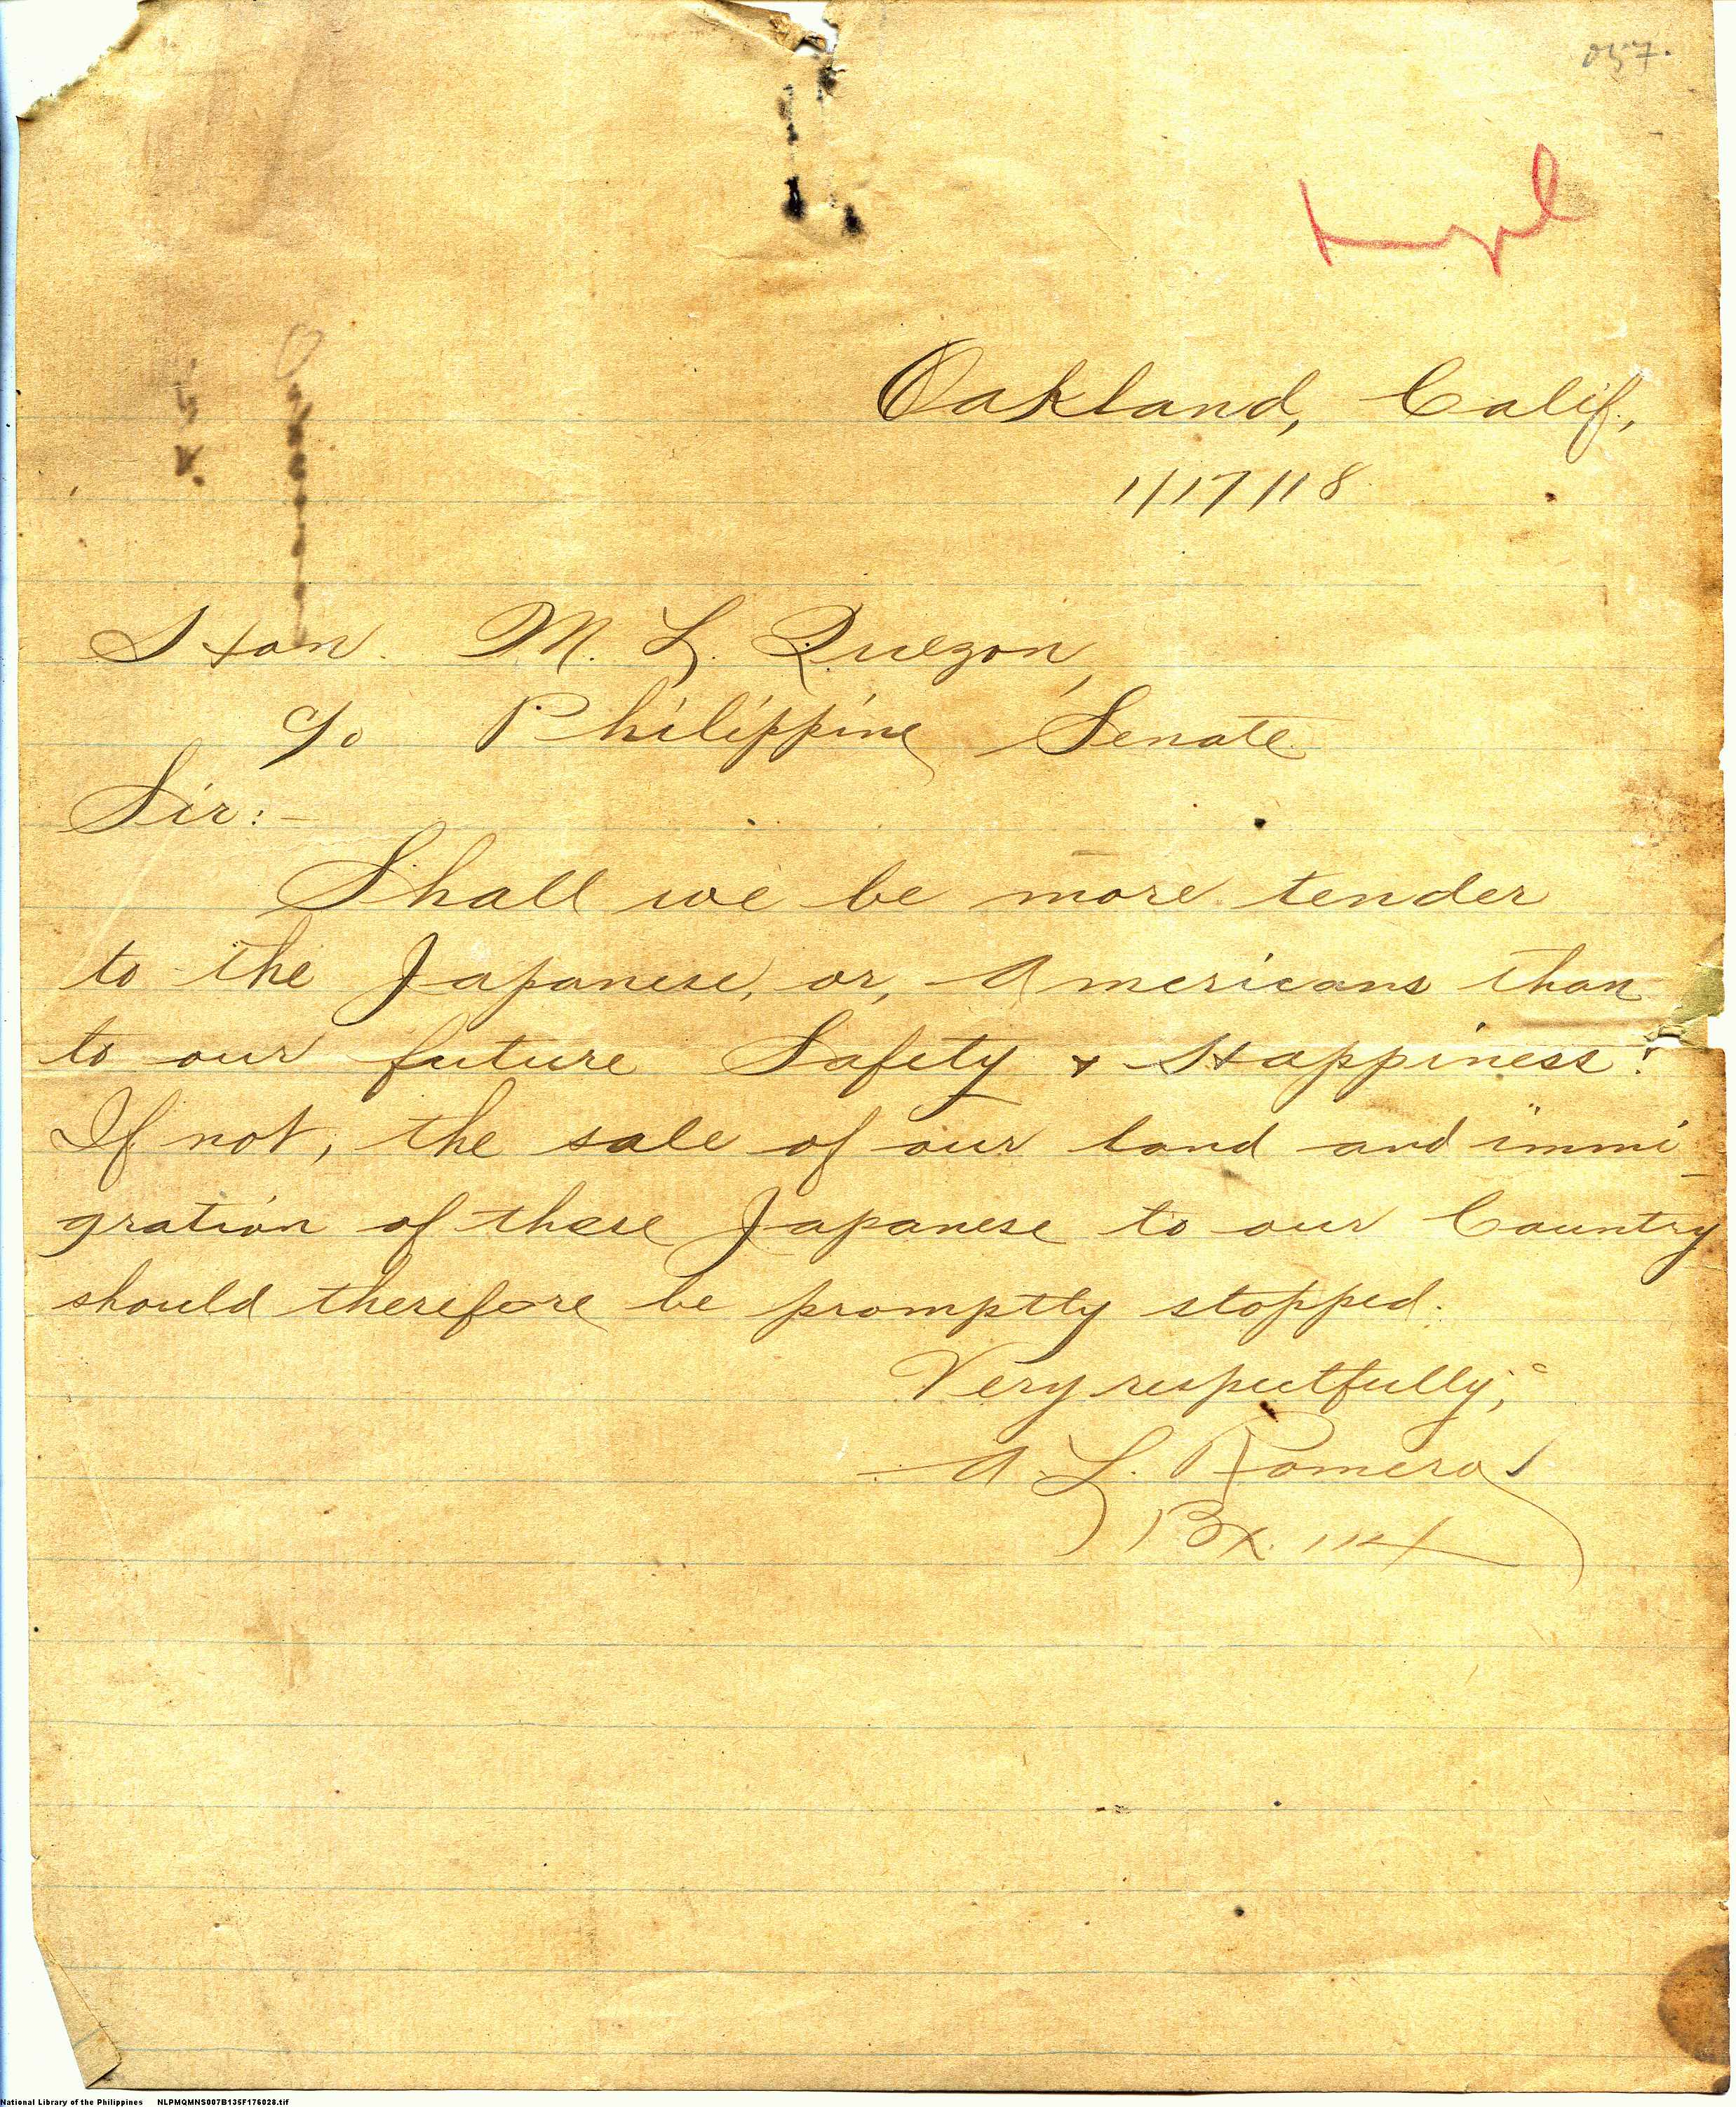 057.
Oakland, Calif.,
1/17/18
Hon. M. L. Quezon,
c/o Philippine Senate
Sir:-
Shall we be more tender
to the Japanese, or, Americans than
to our future Safety & Happiness?
If not, the sale of our land and immi-
gration of these Japanese to our Country
should therefore be promptly stopped.
Very respectfully,
A. L. Romero
Bx. 114
National Library of the Philippines NLPMQMNS007B135F176028.tif